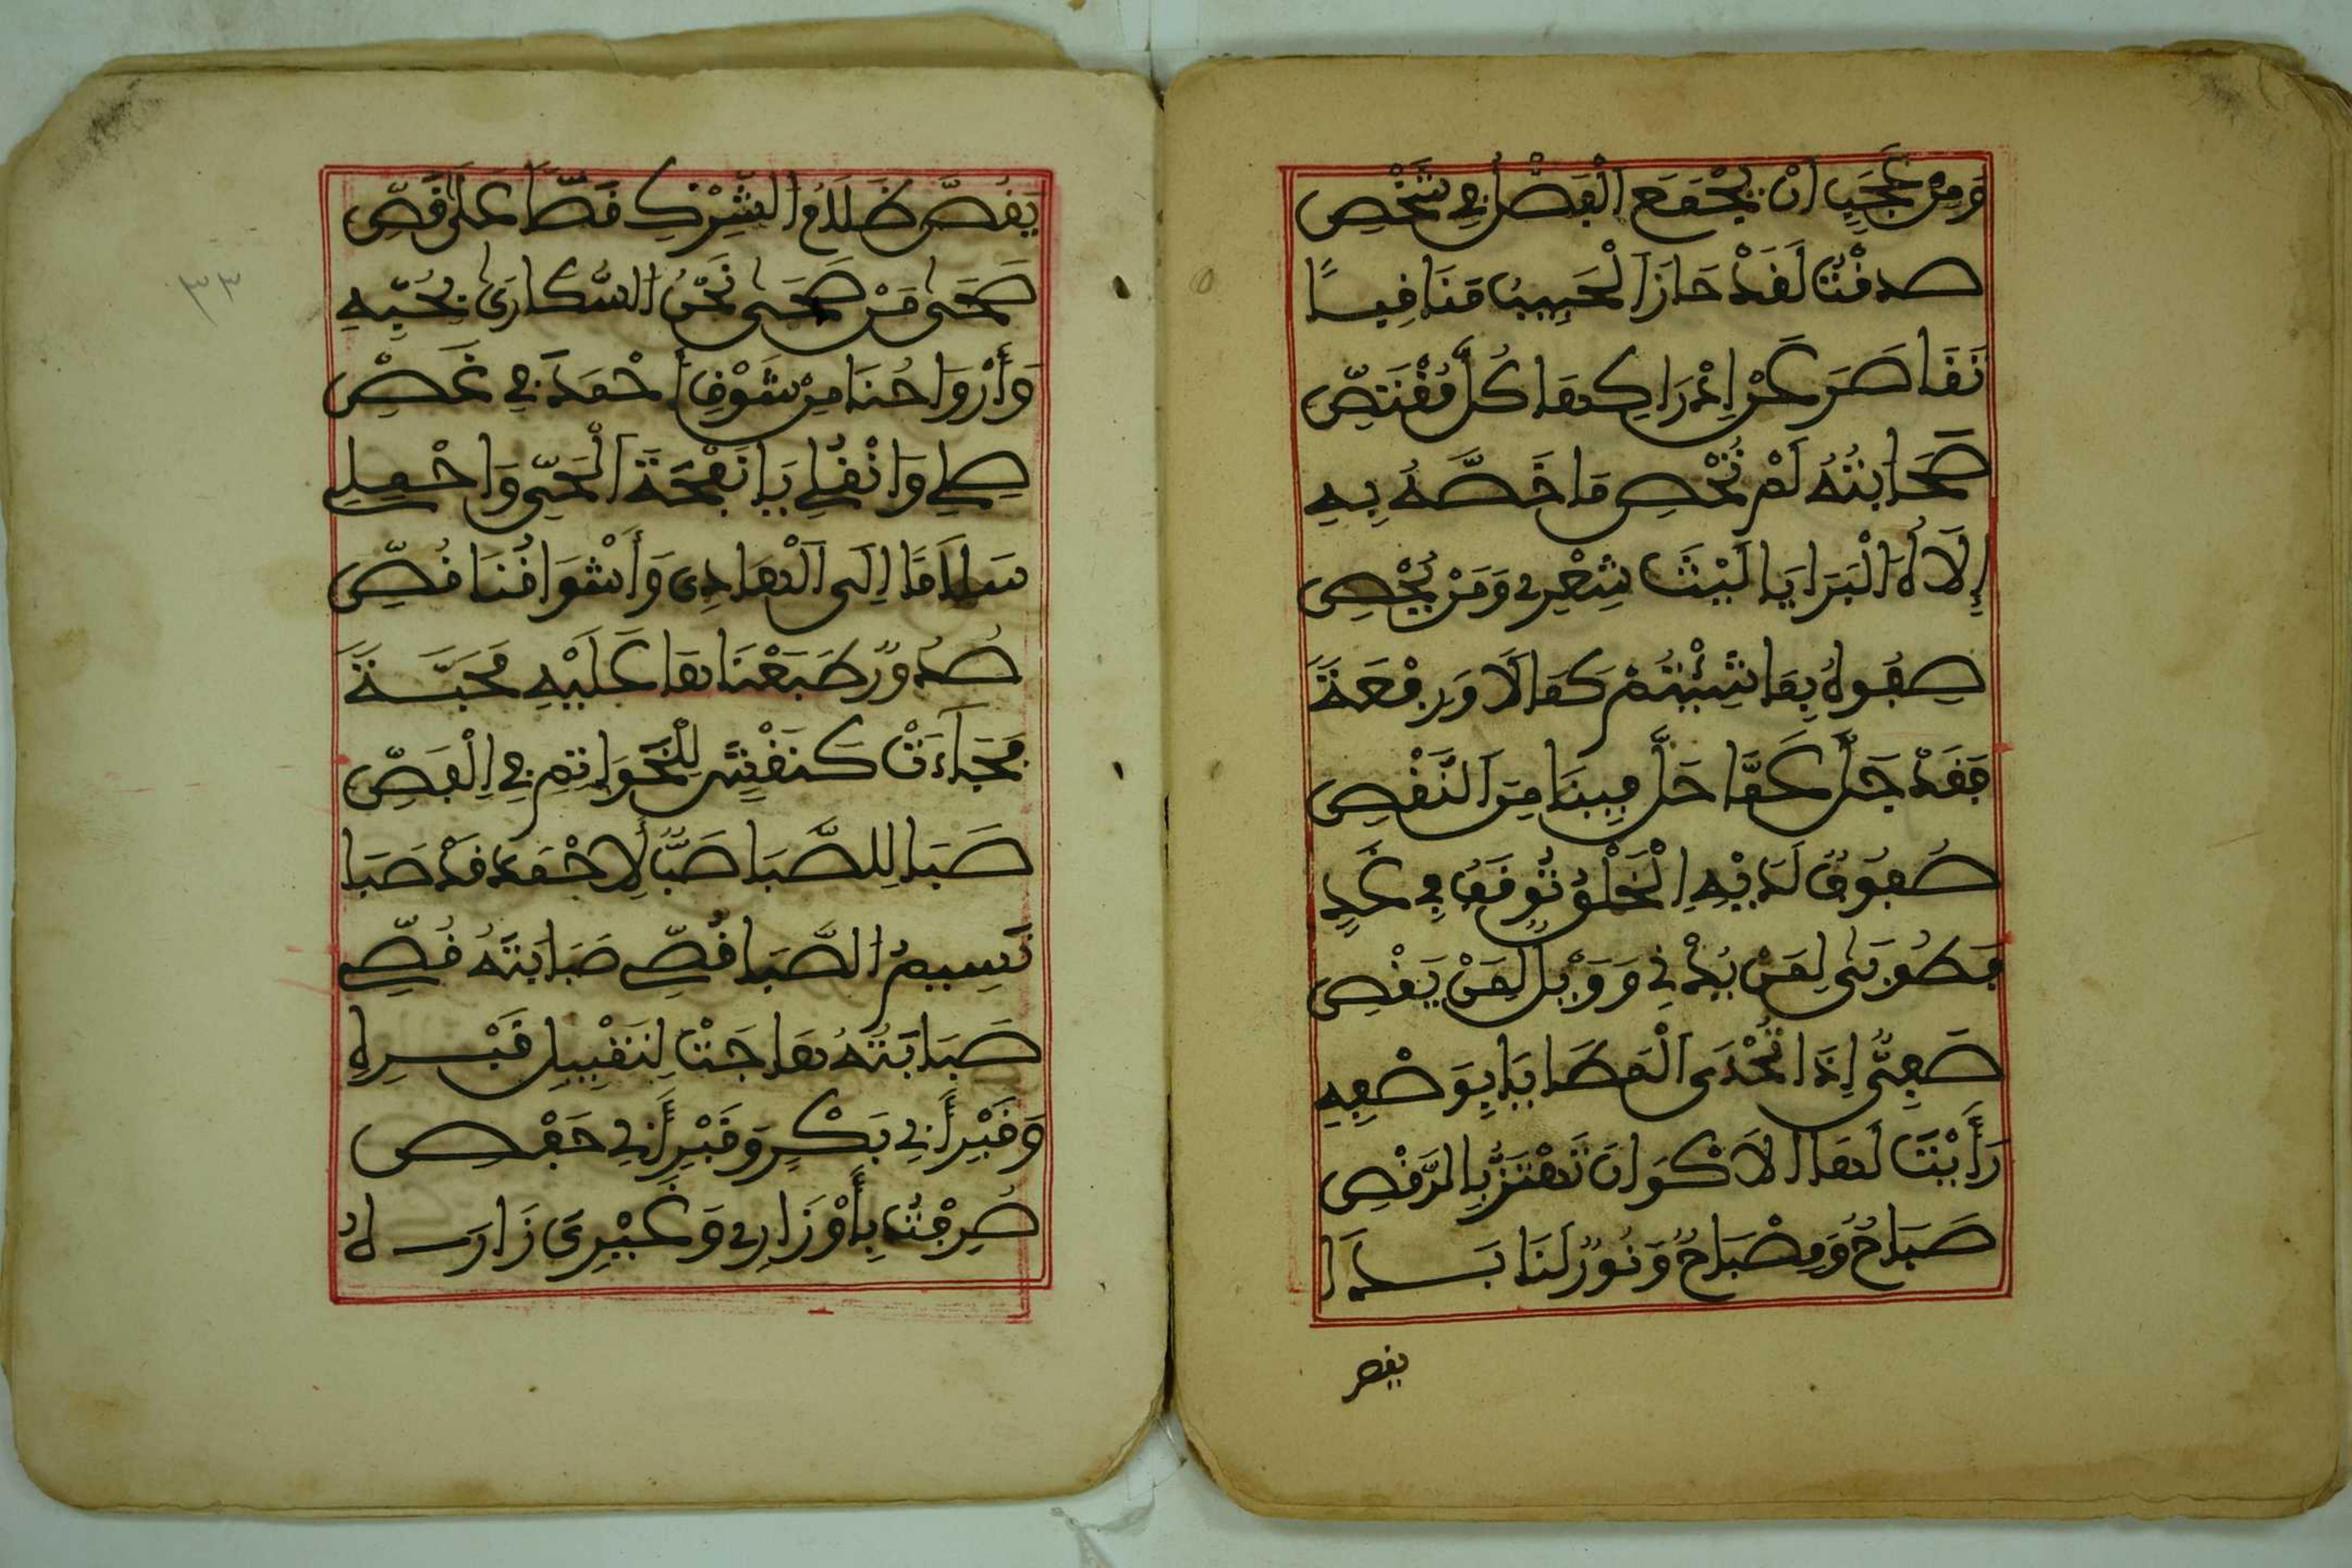 وَمِنْ عَجَبٍ أَنْ يُجْمَعَ الْفَضْلُ فِي شَخْصِ
صدقْتُ لَقَدْ حَازَ الْحَبِيبُ مَنَافِسًا
تَقَاصَرَ عَنْ إِدْرَاكِهَا كُلُّ مُقْتَصِّ
صَحَابَتُهُ لَمْ تُحْصِ مَا خَصَّهُ بِهِ
إِلَاهُ الْبَرَايَا لَيْتَ شِعْرِي وَمَنْ يُحْصِي
صِفُوهُ بِمَا شِئْتُمْ كَمَالًا وَرِفْعَةً
فَقَدْ جَلَّ عَمَّا حَلَّ فِينَا مِنَ النَّقْصِ
صُفُوفٌ لَدَيْهِ الْخَلْقُ تُوقَفُ فِي غَدٍ
فَطُوبَى لِمَنْ يُدْنِي وَوَيْلٌ لِمَنْ يَقْصِ
صَفِيٌّ إِذَا تُحْدَى الْمَطَايَا بِوَصْفِهِ
رَأَيْتَ لَهَا الْأَكْوَانَ تَهْتَزُّ بِالرَّقْصِ
صَبَاحٌ وَمِصْبَاحٌ وَنُورٌ لَنَا بَدَا
يقص
٣٣
يَقُصُّ ظَلَامَ الشِّرْكِ قَصًّا عَلَى قَصِّ
صَحَى مَنْ صَحَى نَحْنُ السُّكَارَى بِحُبِّهِ
وَأَرْوَاحُنَا مِنْ شَوْقِ أَحْمَدَ فِي غَصِّ
صِلِي وَانْقُلِي يَا نَفْحَةَ الْحَيِّ وَاحْمِلِي
سَلَامًا إِلَى الْهَادِي وَأَشْوَاقُنَا قُصِّي
صُدُورٌ طَبَعْنَاهَا عَلَيْهِ مَحَبَّةً
فَجَاءَتْ كَنَقْشٍ لِلْخَوَاتِمِ فِي الْفَصِّ
صَبَا لِلصَّبَا صَبٌّ لِأَحْمَدَ قَدْ صَبَا
نَسِيمُ الصَّبَا قُصِّي صَبَابَتَهُ قُصِّي
صَبَابَتُهُ هَاجَتْ لِتَقْبِيلِ قَبْرِهِ
وَقَبْرِ أَبِي بَكْرٍ وَقَبْرِ أَبِي حَفْصِ
صُرِفْتُ بِأَوْزَارِي وَغَيْرِيَ زَارَهُ